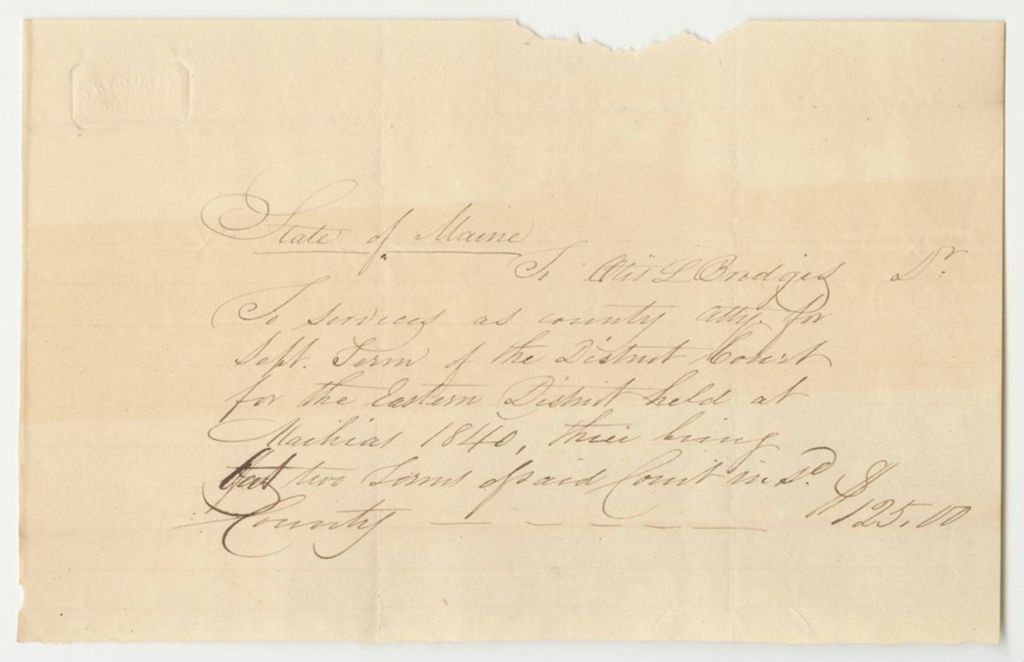 State of Maine
To Otis L Bridges Dr.
To services as county atty. for
Sept. Term of the District Court
for the Eastern District held at
Machias 1840, there being
but two Terms of said Court in sd.
County — — — — — $125.00